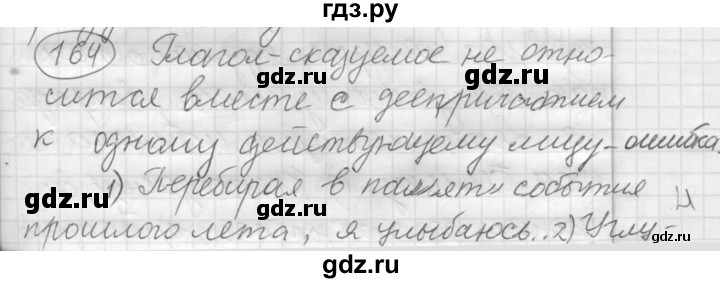 гдз.ру
164 Глагол-сказуемое не отно-
сится вместе с деепричастием
к одному действующему лицу - ошибка.
1) Перебирая в памяти события
прошлого лета, я улыбаюсь. 2) Углу-
gdz.ru
gdz.ru
gdz.ru
gdz.ru
gdz.ru
gdz.ru
gdz.ru